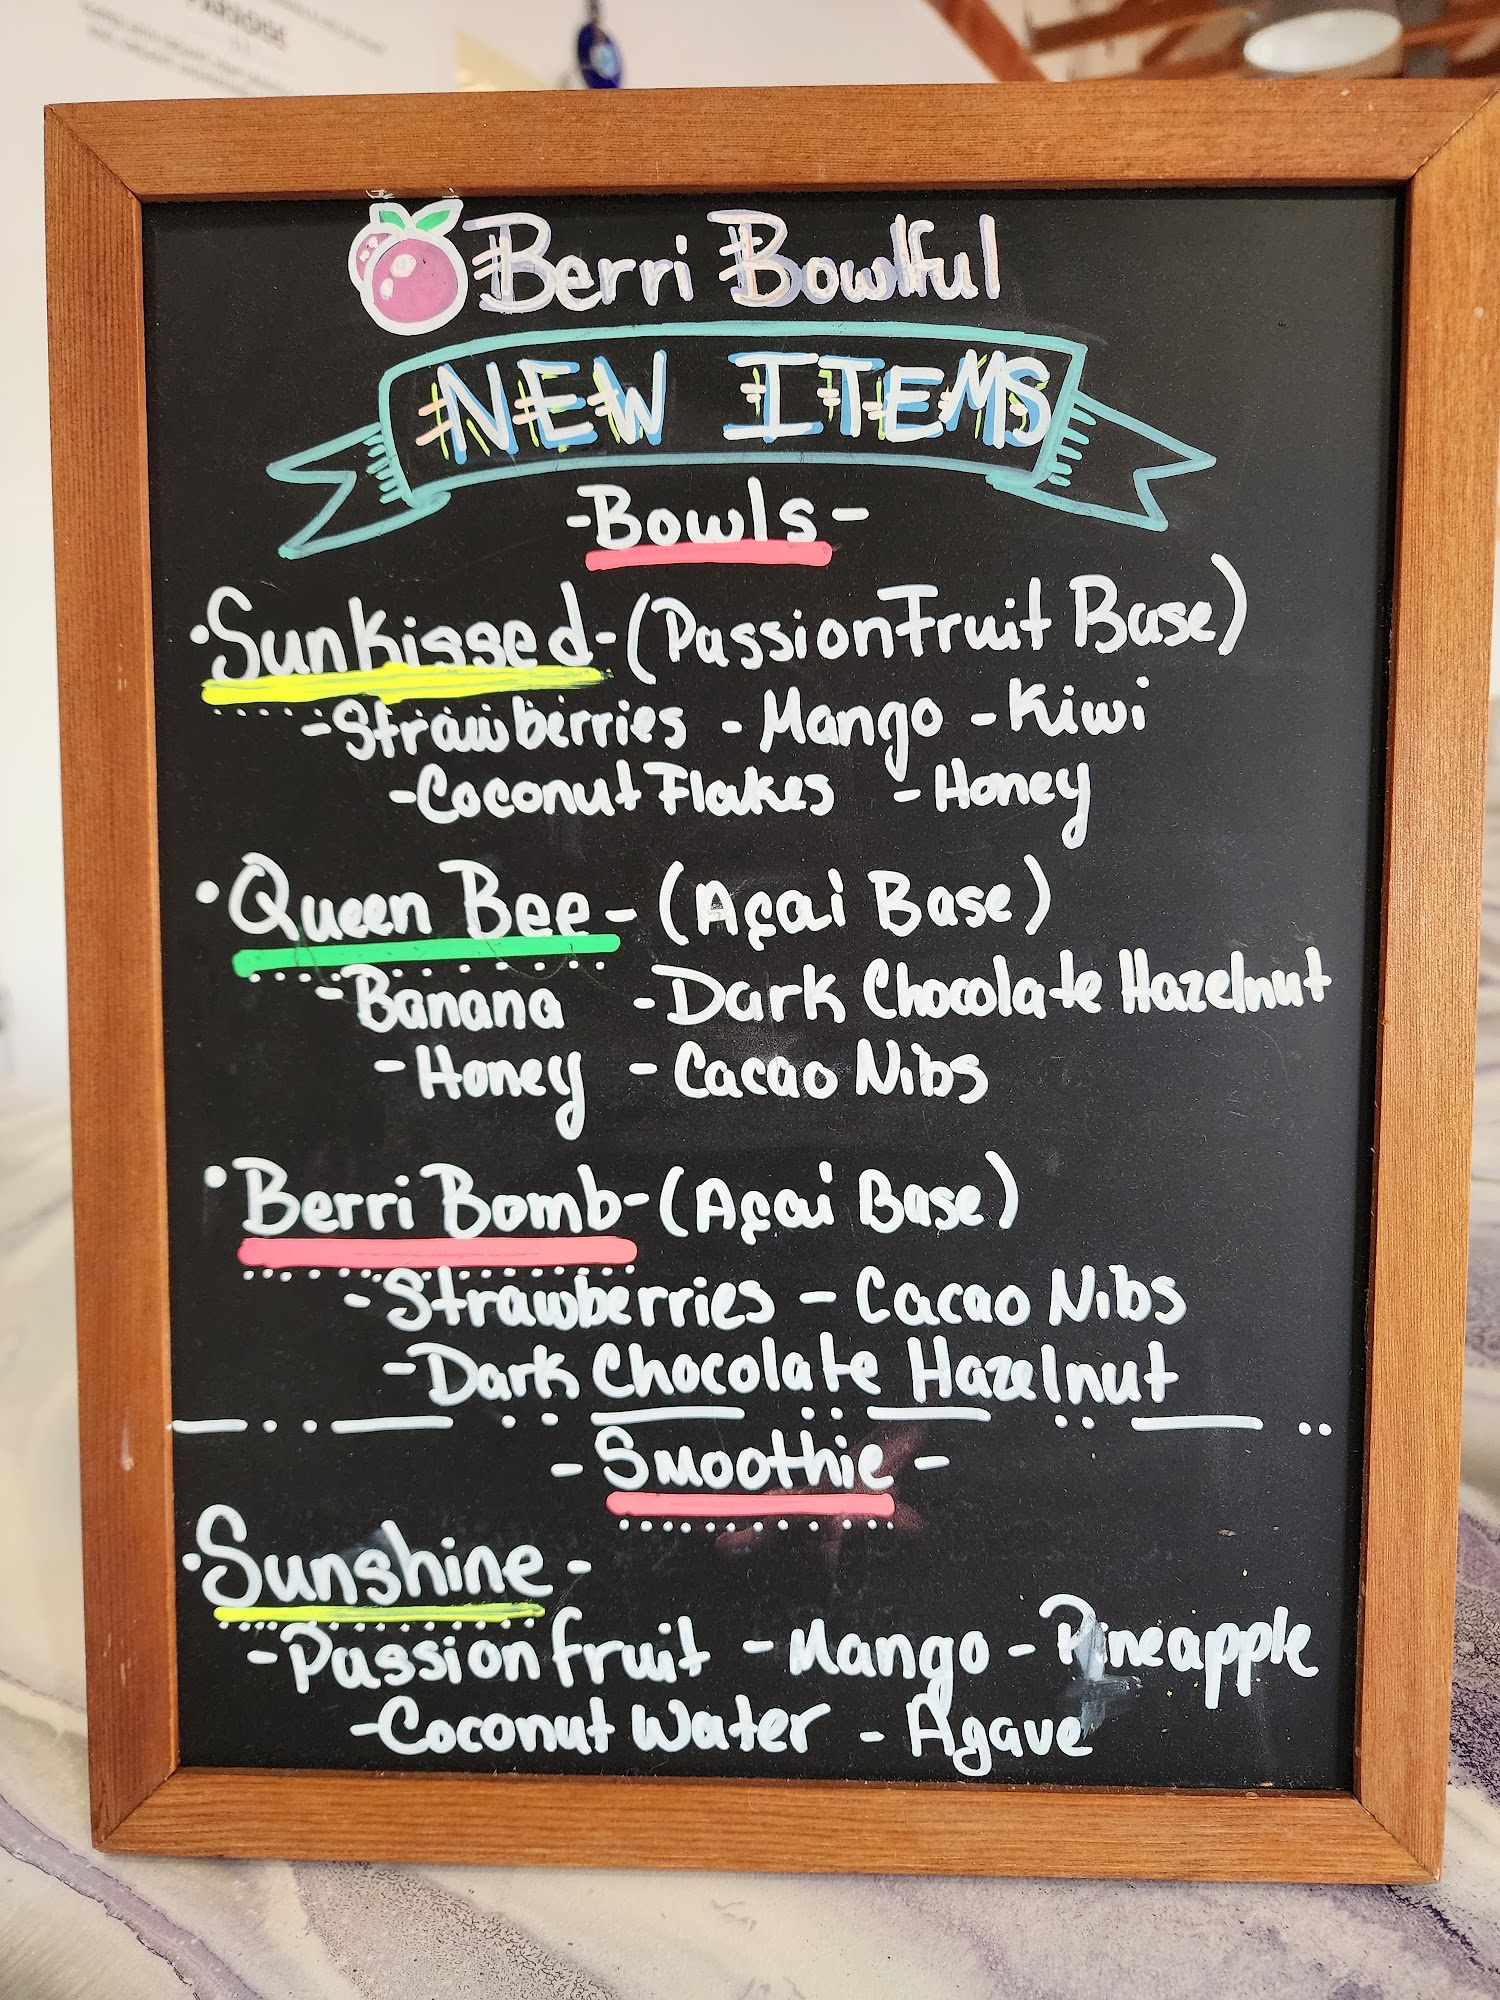 PARADISE
Berri Bowlful
NEW ITEMS
-Bowls-
•Sunkissed-(PassionFruit Base)
-Strawberries -Mango -Kiwi
-Coconut Flakes -Honey
•Queen Bee-(Açai Base)
-Banana -Dark Chocolate Hazelnut
-Honey -Cacao Nibs
•Berri Bomb-(Açai Base)
-Strawberries -Cacao Nibs
-Dark Chocolate Hazelnut
-Smoothie-
•Sunshine-
-Passion fruit -Mango -Pineapple
-Coconut Water -Agave